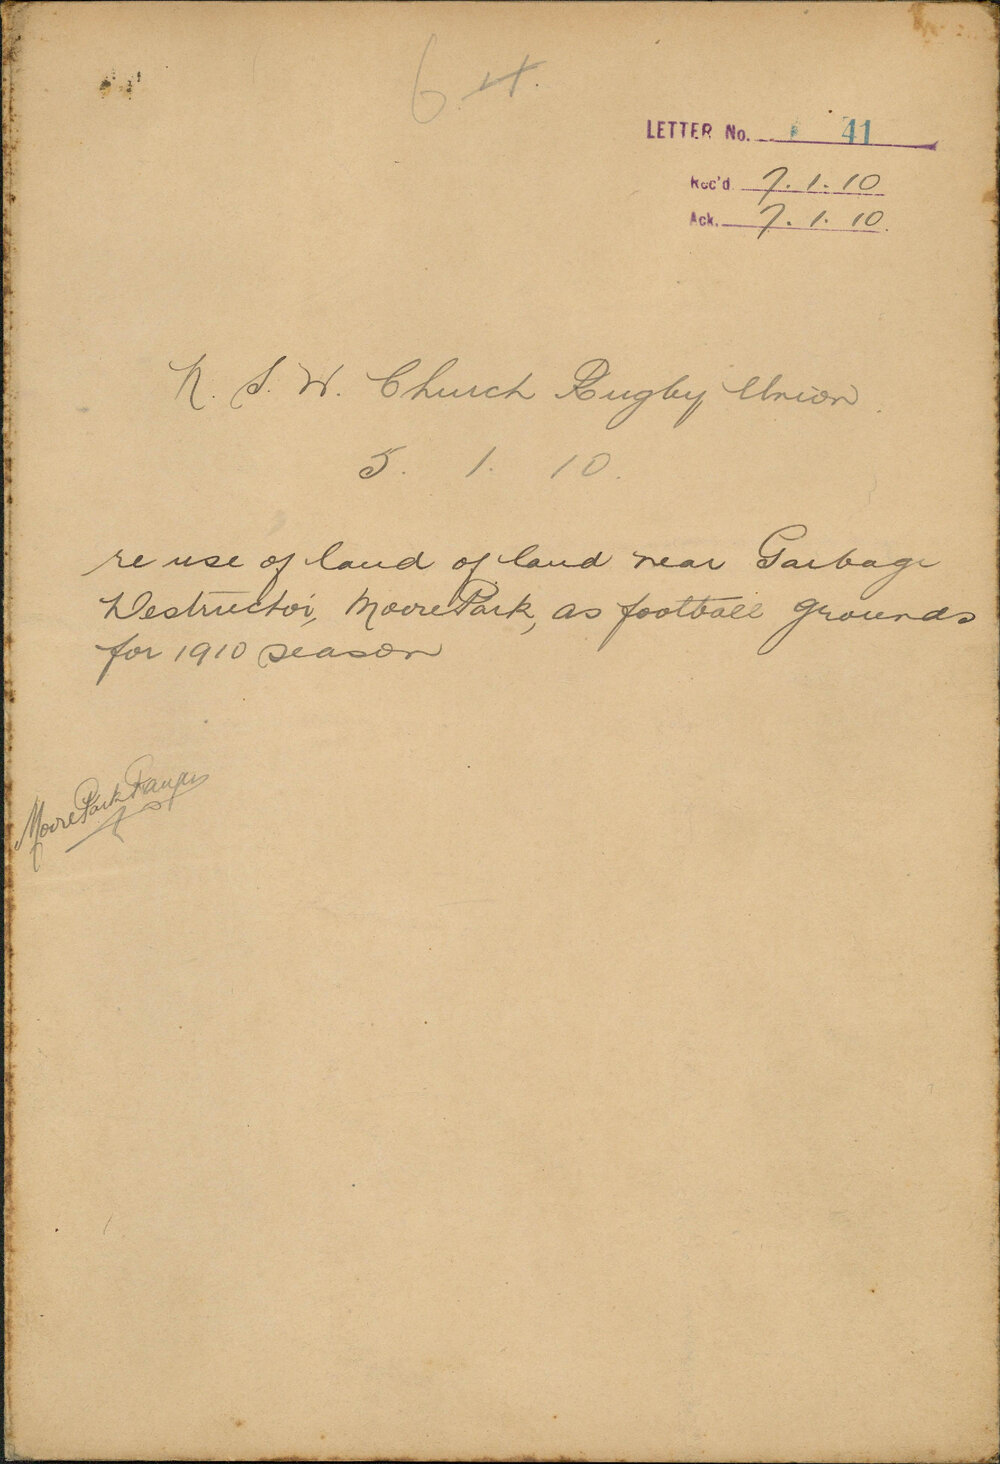 LETTER No. 41
Rec'd 7.1.10
Ack. 7.1.10.
N. S. W. Church Rugby Union
5. 1. 10.
re use of land of land near Garbage
Destructor, Moore Park, as football grounds
for 1910 season
Moore Park